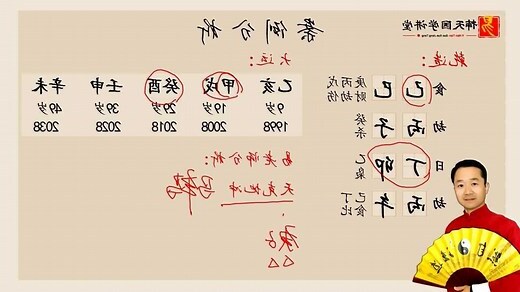 易 天国学讲堂
案例分析
乾造:
食 己 巳 庚丙戊 财劫伤
劫 丙 子 癸 杀
日 丁 卯 乙 枭
劫 丙 午 丁己 比食
大运:
乙亥 甲戌 癸酉 壬申 辛未
9岁 19岁 29岁 39岁 49岁
1998 2008 2018 2028 2038
易老师分析:
天克地冲